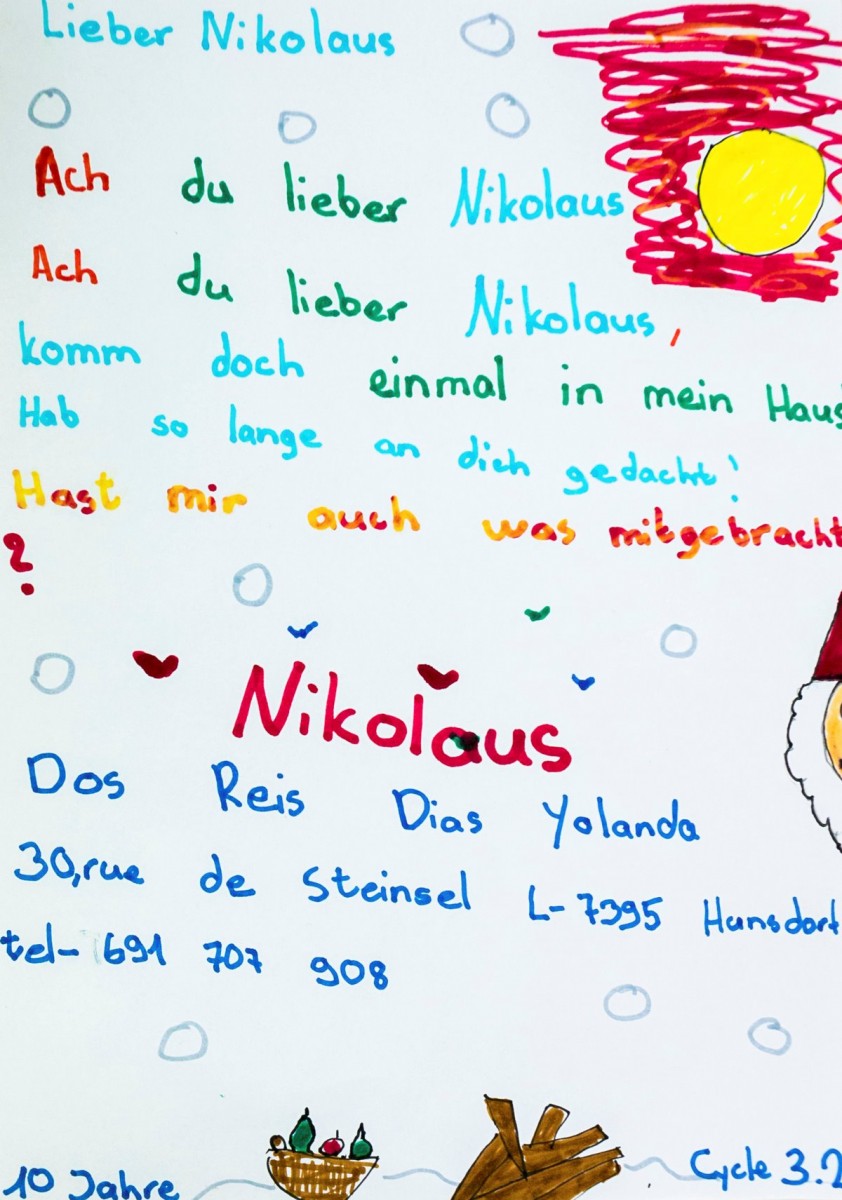 Lieber Nikolaus
Ach du lieber Nikolaus
Ach du lieber Nikolaus,
komm doch einmal in mein Haus
Hab so lange an dich gedacht!
Hast mir auch was mitgebracht
?
Nikolaus
Dos Reis Dias Yolanda
30,rue de Steinsel L-7395 Hunsdorf
tel- 691 707 908
10 Jahre
Cycle 3.2